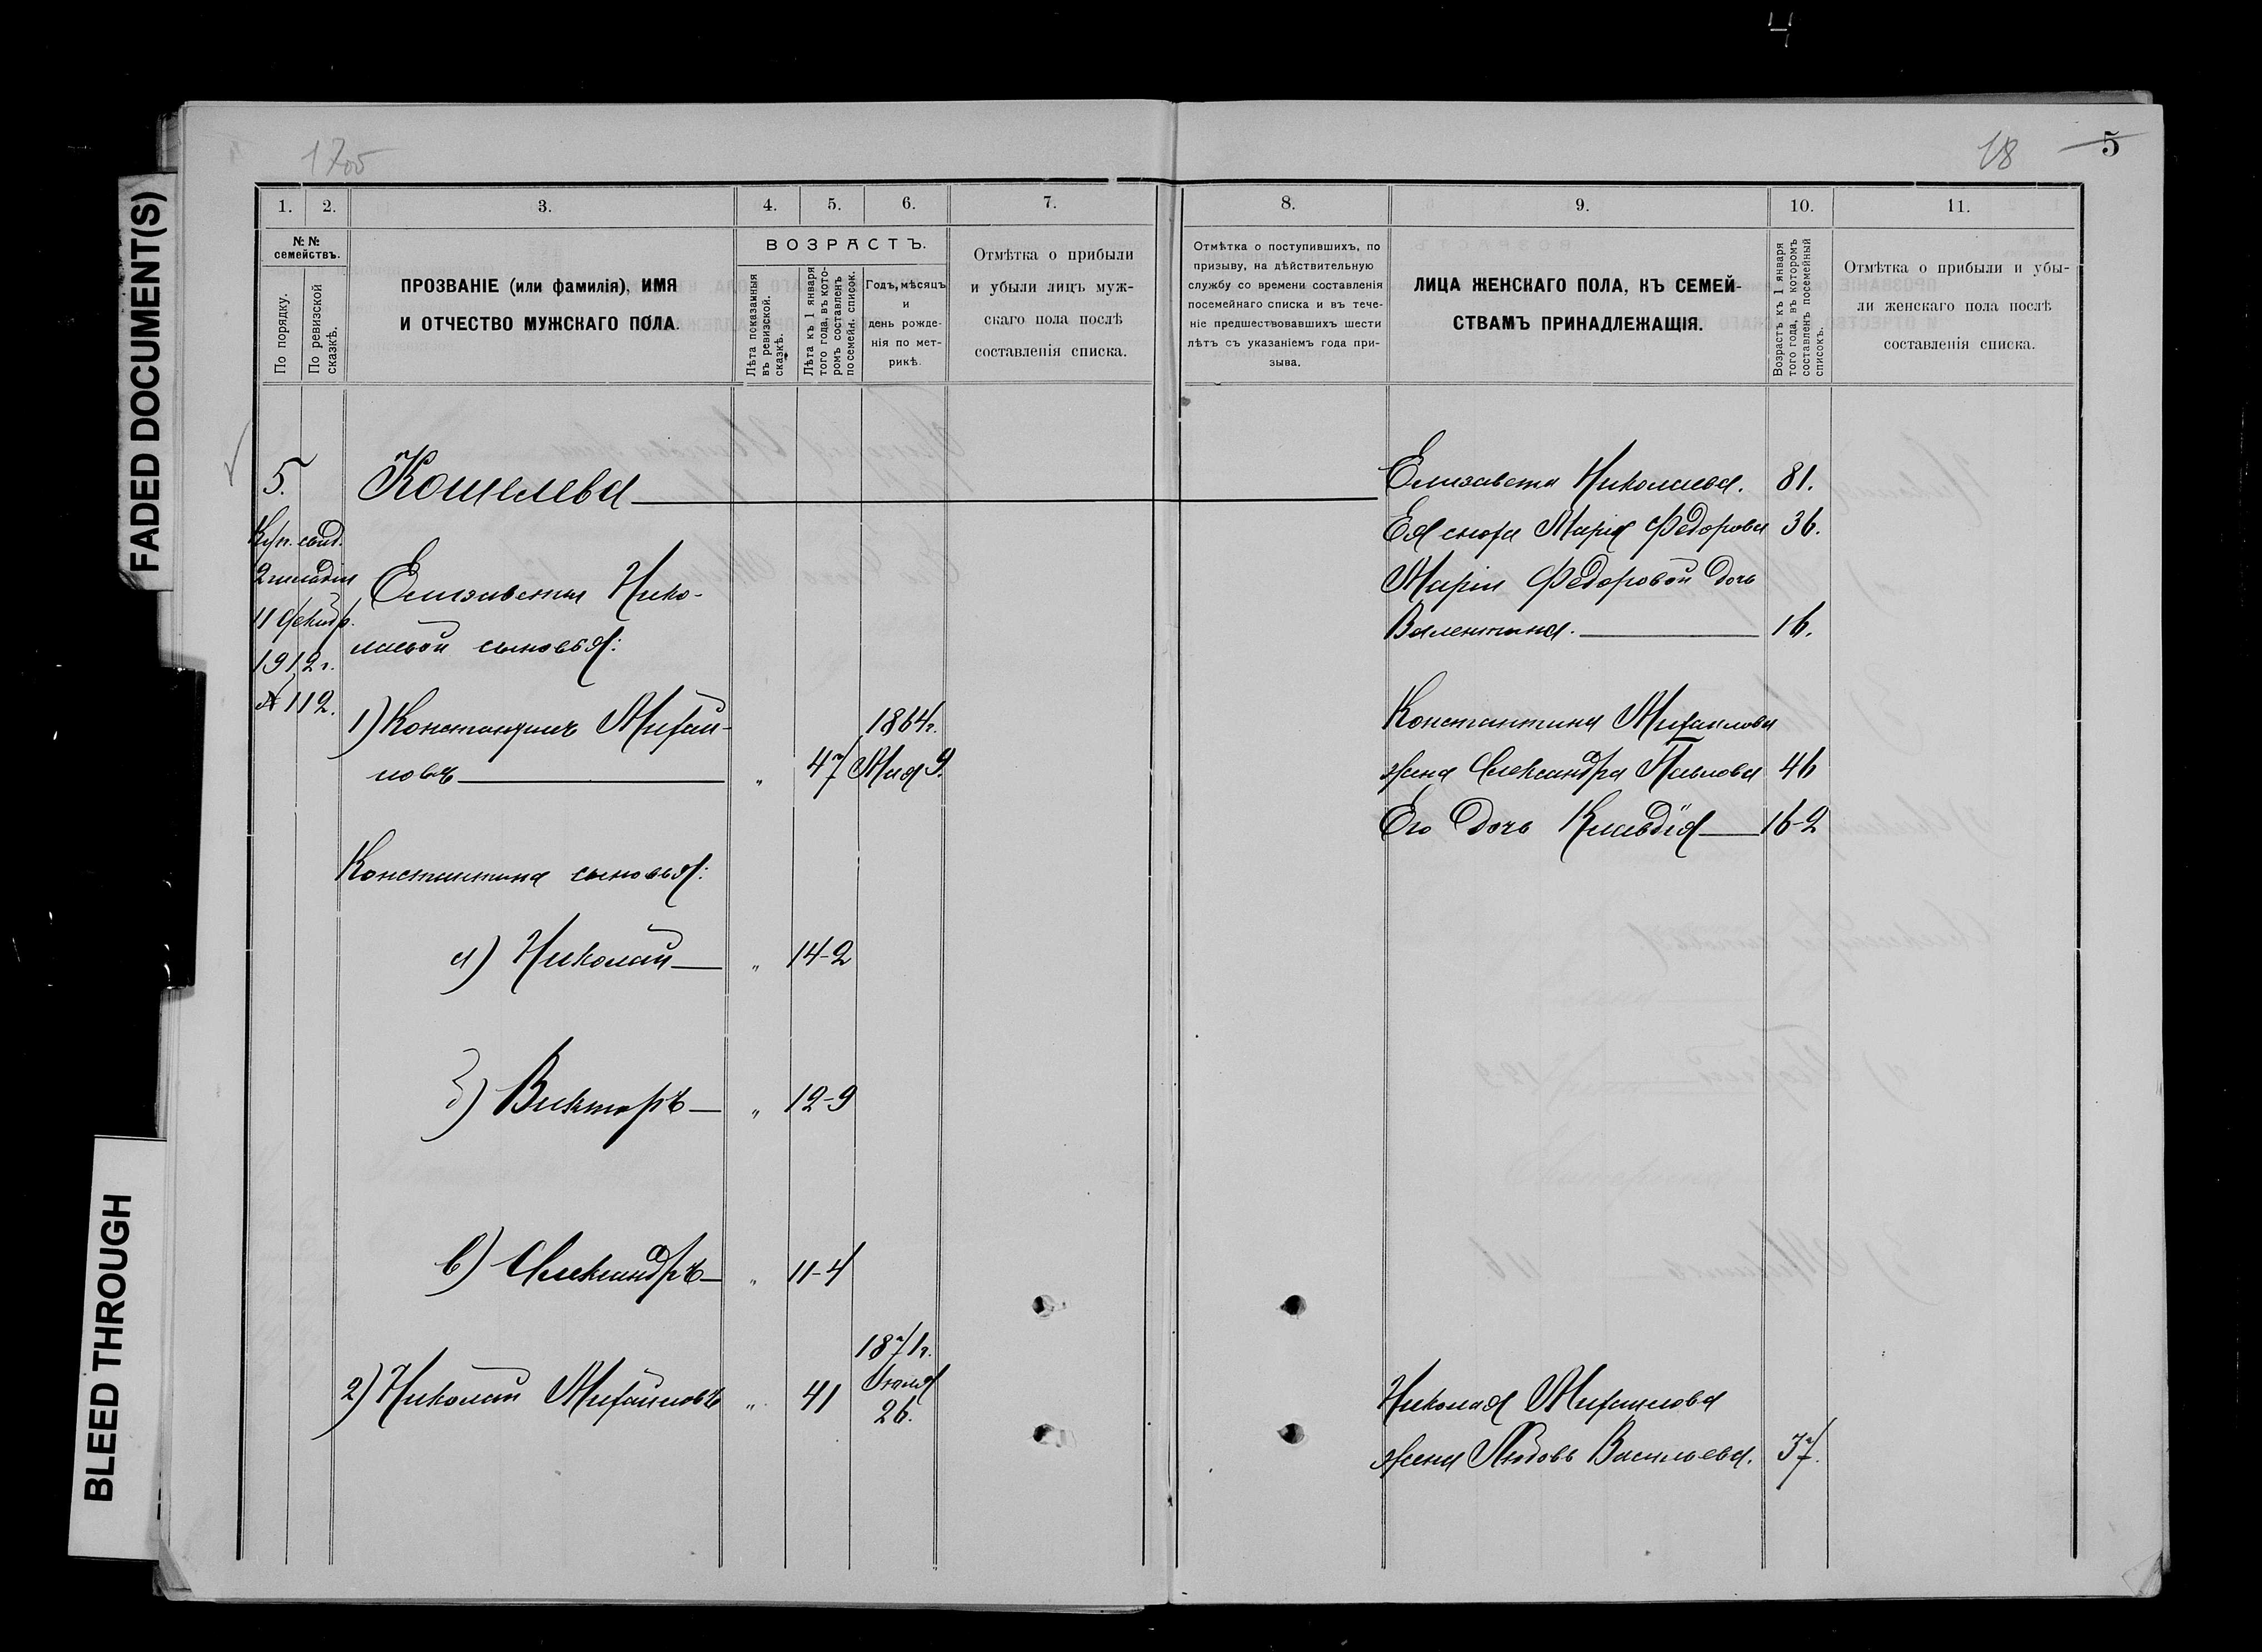 4
FADED DOCUMENT(S)
BLEED THROUGH
1705
18
5
1.
2.
3.
4.
5.
6.
7.
№ №
семействъ.
По порядку.
По ревизской
сказкѣ.
ПРОЗВАНІЕ (или фамилія), ИМЯ
И ОТЧЕСТВО МУЖСКАГО ПОЛА.
ВОЗРАСТЪ.
Лѣта показанныя
въ ревизской.
сказкѣ.
Лѣта къ 1 января
того года, въ кото-
ромъ составленъ
посемейн. списокъ.
Годъ, мѣсяцъ
и
день рожде-
нія по мет-
рикѣ.
Отмѣтка о прибыли
и убыли лицъ муж-
скаго пола послѣ
составленія списка.
5.
Куп. свид.
2 гильдіи
11 Декабр.
1912 г.
№ 112.
Кошелева
Елизаветы Нико-
лаевой сыновья:
1) Константинъ Михаи-
ловъ " 47 1864 г. Мая 9.
Константина сыновья:
а) Николай " 14-2
б) Викторъ " 12-9
в) Александръ " 11-4
2) Николай Михаиловъ " 41 1871 г. 26.
8.
9.
10.
11.
Отмѣтка о поступившихъ, по
призыву, на дѣйствительную
службу со времени составленія
посемейнаго списка и въ тече-
ніе предшествовавшихъ шести
лѣтъ съ указаніемъ года при-
зыва.
ЛИЦА ЖЕНСКАГО ПОЛА, КЪ СЕМЕЙ-
СТВАМЪ ПРИНАДЛЕЖАЩІЯ.
Возрастъ къ 1 января
того года, въ которомъ
составленъ посемейный
списокъ.
Отмѣтка о прибыли и убы-
ли женскаго пола послѣ
составленія списка.
Елизавета Николаева. 81.
Ея сноха Марія Федорова 36.
Маріи Федоровой дочь
Валентина. 16.
Константина Михаилова
жена Александра Павлова 46
Его дочь Клавдія 16-2
Николая Михаилова
жена Любовь Васильева. 37.